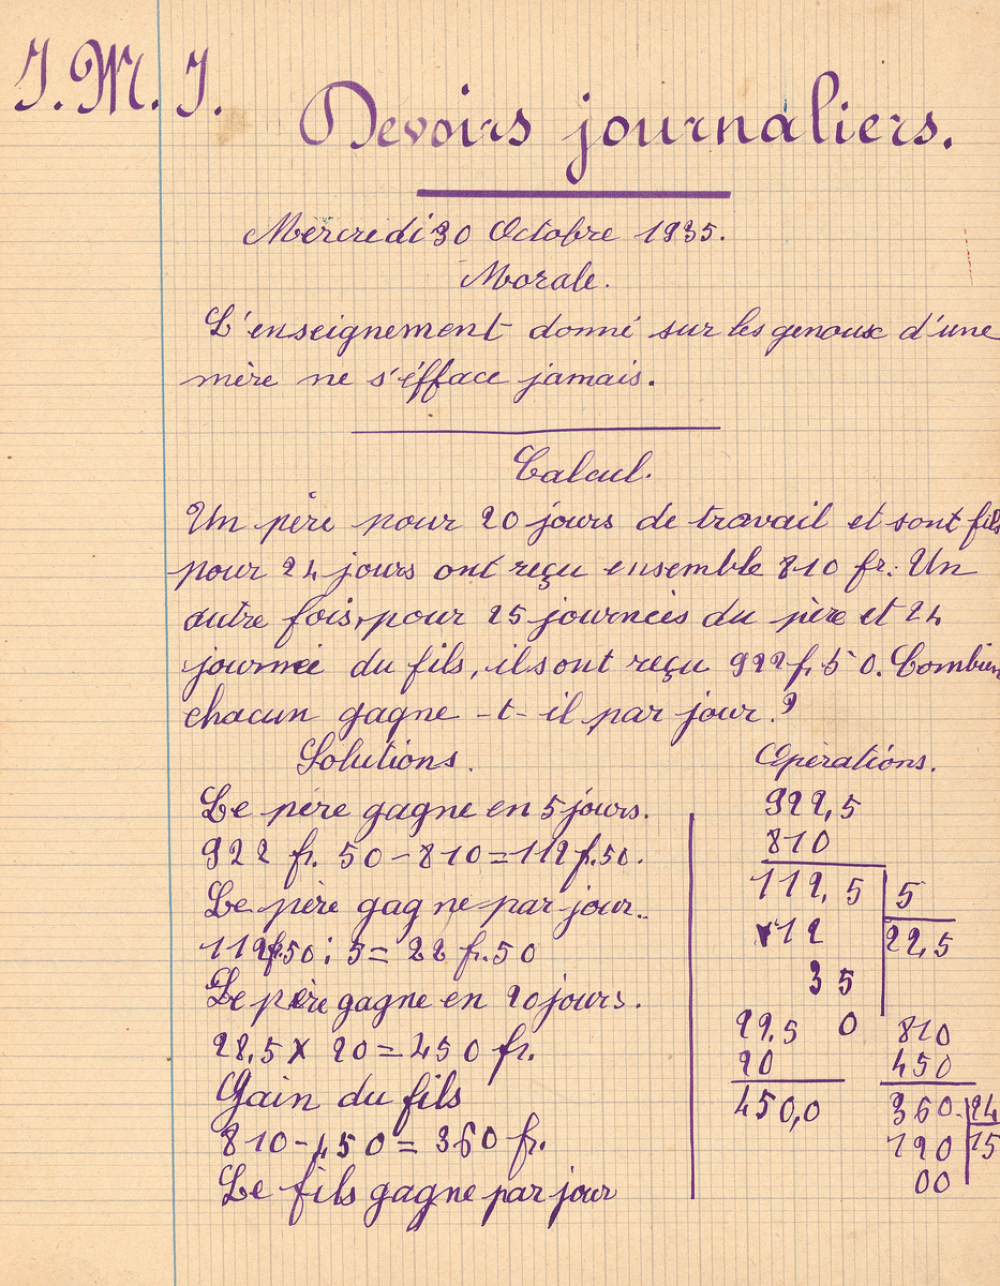 J. M. J.
Devoirs journaliers.
Mercredi 30 Octobre 1935.
Morale.
L'enseignement donné sur les genoux d'une
mère ne s'éfface jamais.
Calcul.
Un père pour 20 jours de travail et sont fils
pour 24 jours ont reçu ensemble 810 fr. Un
autre fois, pour 25 journées du père et 24
journée du fils, ils ont reçu 922 f, 50. Combien
chacun gagne -t- il par jour ?
Solutions.
Le père gagne en 5 jours.
922 fr. 50 - 810 = 112 f. 50.
Le père gagne par jour..
112 f. 50 : 5 = 22 fr. 50
Le père gagne en 20 jours.
22,5 x 20 = 450 fr.
Gain du fils
810 - 450 = 360 fr.
Le fils gagne par jour
Opérations.
922,5
810
112,5 5
12 22,5
35
0
22,5
20
450,0
810
450
360. 24
120 15
00